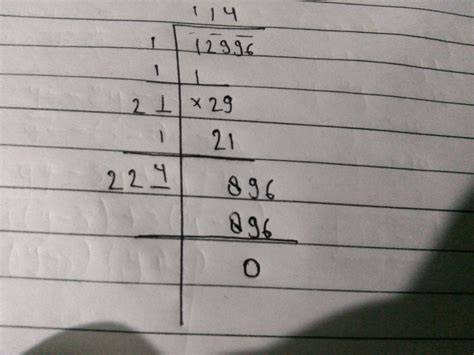 114
1 12996
1 1
21 ×29
1 21
224 896
896
0